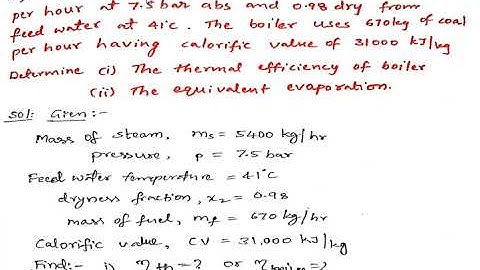 per hour at 7.5 bar abs and 0.98 dry from
feed water at 41°C. The boiler uses 670kg of coal
per hour having calorific value of 31000 kJ/kg
Determine (i) The thermal efficiency of boiler
(ii) The equivalent evaporation.
Sol: Given:-
Mass of steam, ms = 5400 kg/hr
pressure, p = 7.5 bar
Feed water temperature = 41°C
dryness fraction, x2 = 0.98
mass of fuel, mf = 670 kg/hr
Calorific value, CV = 31,000 kJ/kg
Find:- i) ηth = ? or ηboiler = ?